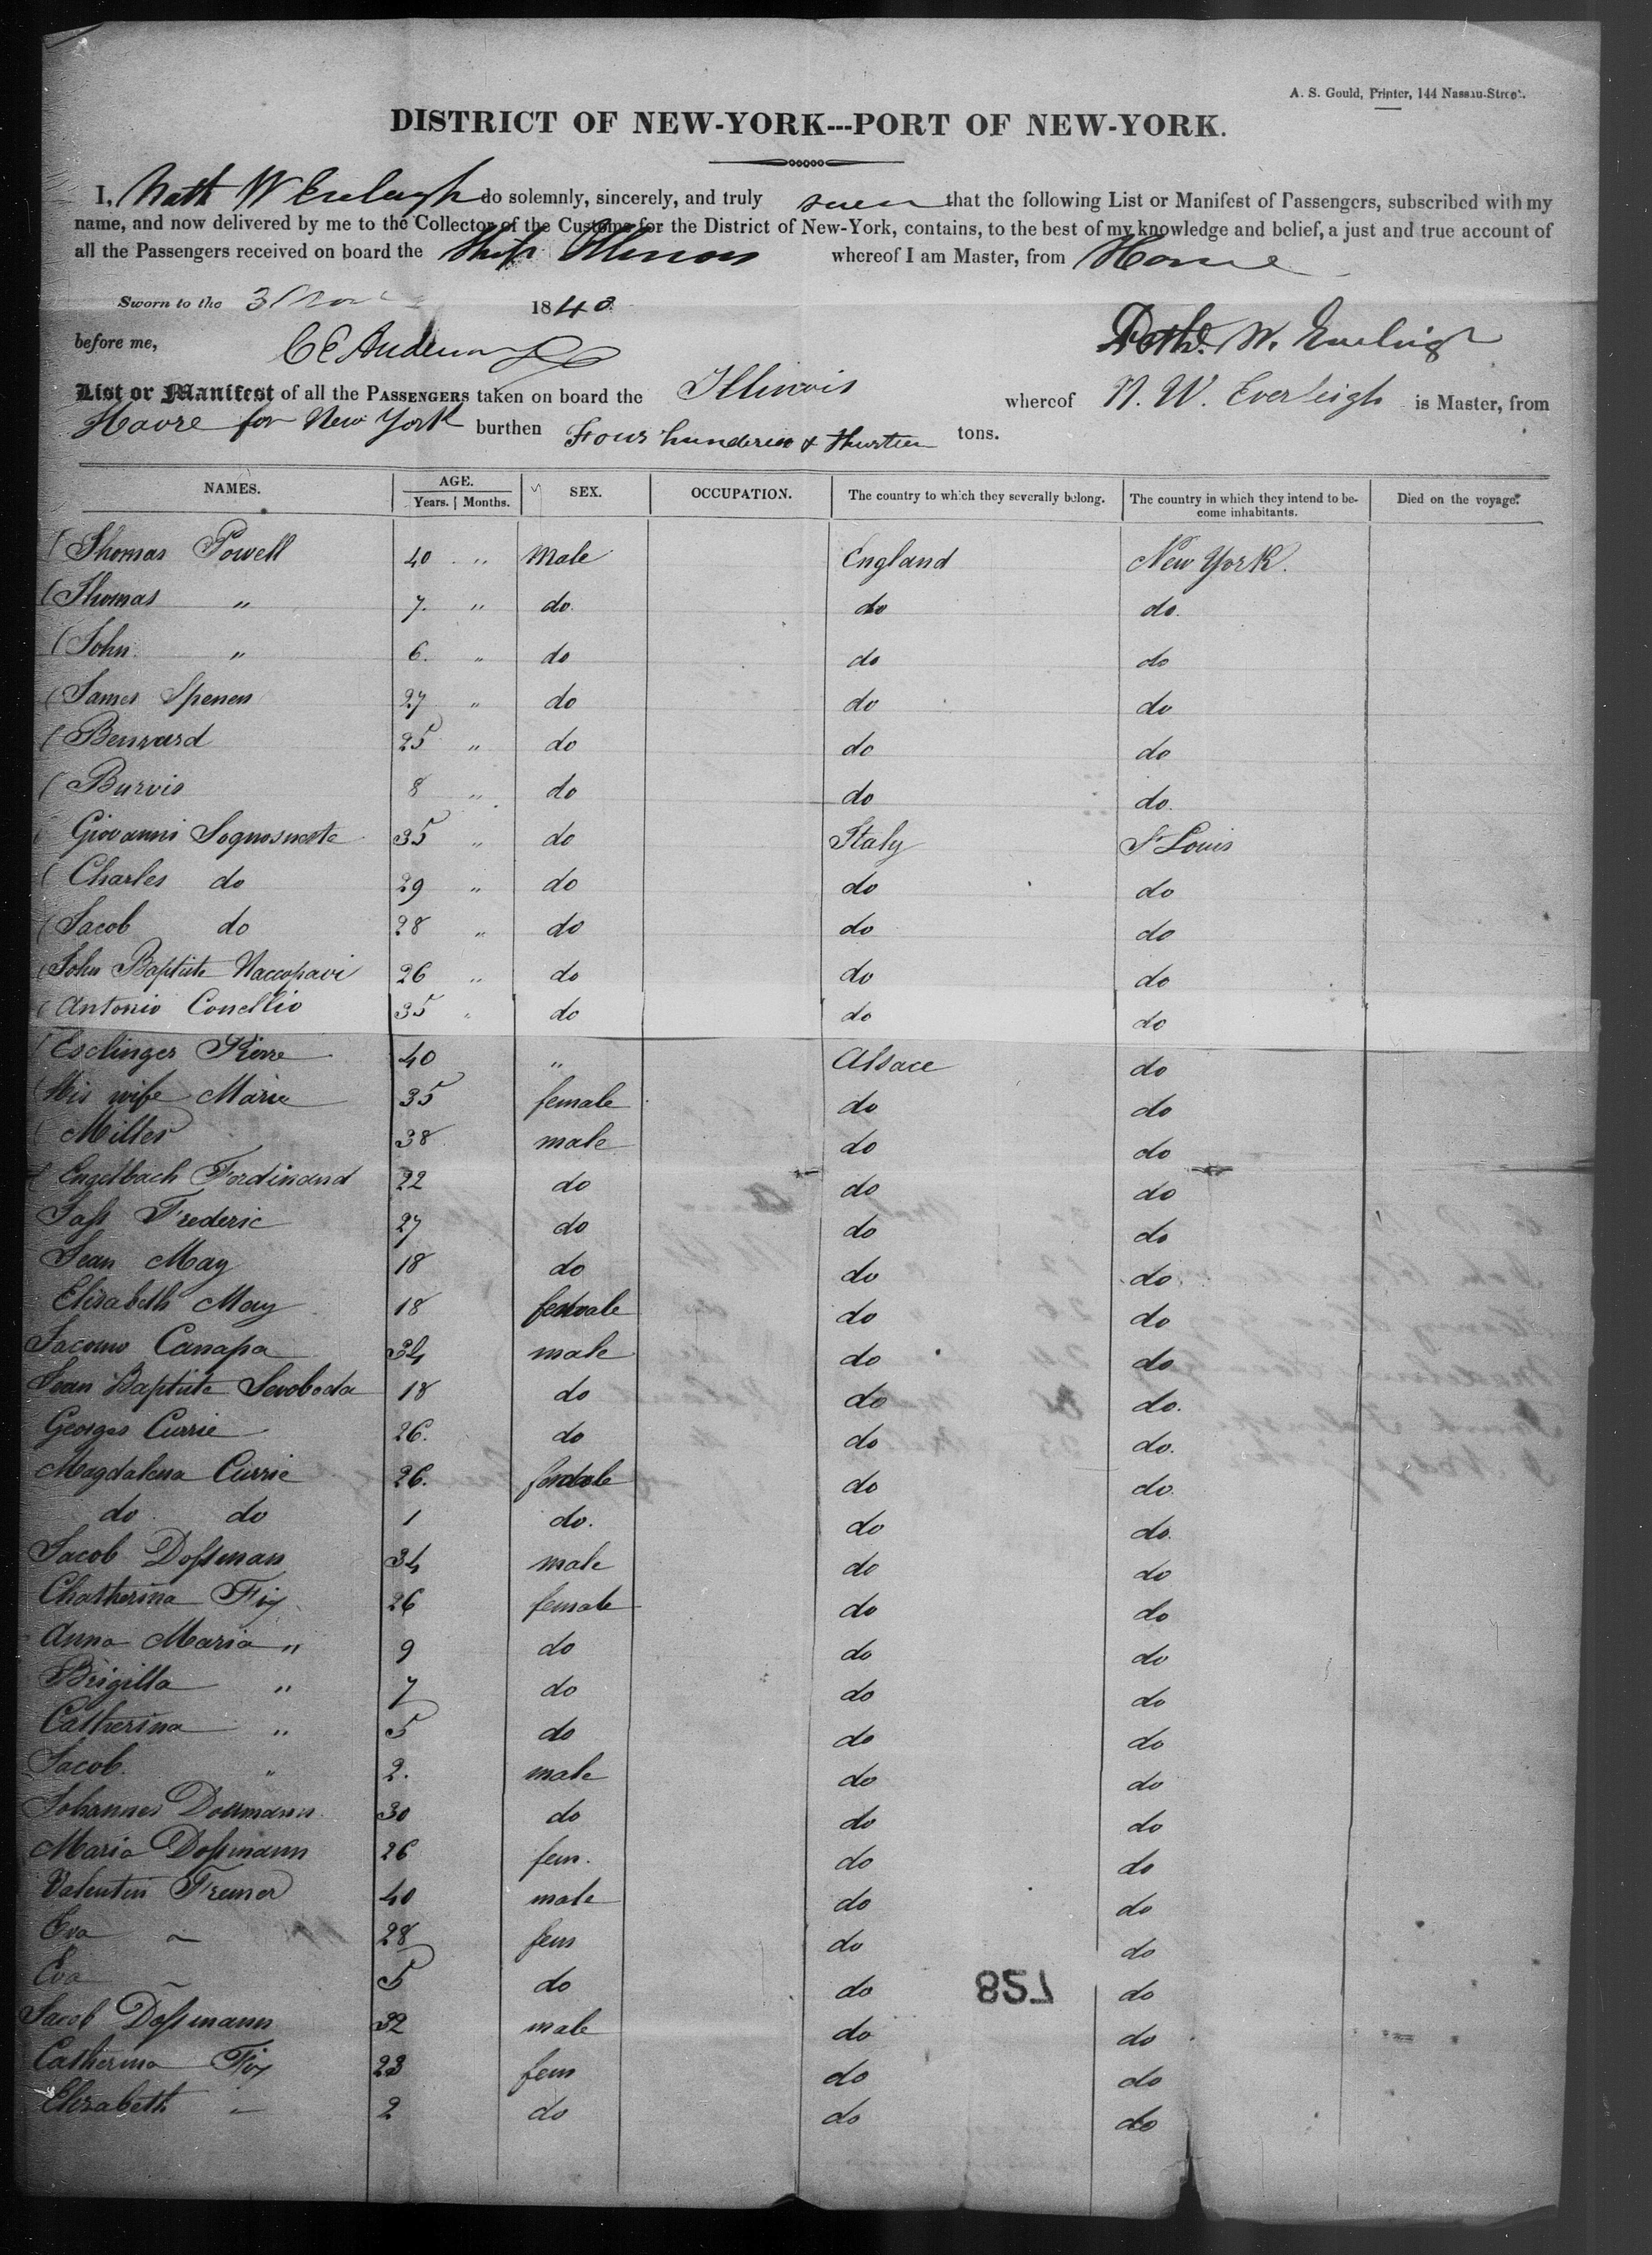 A. S. Gould, Printer, 144 Nassau-Street.
DISTRICT OF NEW-YORK---PORT OF NEW-YORK.
I, Nath W Everleigh do solemnly, sincerely, and truly swear that the following List or Manifest of Passengers, subscribed with my
name, and now delivered by me to the Collector of the Customs for the District of New-York, contains, to the best of my knowledge and belief, a just and true account of
all the Passengers received on board the Ship Illinois whereof I am Master, from Havre
Sworn to the 3 1840
before me, Nathl. W. Everleigh
List or Manifest of all the PASSENGERS taken on board the Illinois whereof N. W. Everleigh is Master, from
Havre for New York burthen Four hundered & thurteen tons.
NAMES. AGE. SEX. OCCUPATION. The country to which they severally belong. The country in which they intend to be- Died on the voyage.
Years. Months. come inhabitants.
Thomas Powell 40 " Male England New York.
Thomas " 7. " do. do do.
John " 6. " do do do
James Spenen 27 " do do do
Bernard 25 " do do do
Burvis 8 " do do do.
Giovanni 35 " do Italy St Louis
Charles do 29 " do do do
Jacob do 28 " do do do
John Baptiste 26 " do do do
Antonio Conellio 35 " do do do
Esclinger Pierre 40 " Alsace do
His wife Marie 35 female do do
Miller 38 male do do
Engelbach Ferdinand 22 do do do
Jass Frederic 27 do do do
Jean May 18 do do do
Elisabeth May 18 female do do
Jacomo Canapa 34 male do do
Jean Baptiste Sevoboda 18 do do do.
Georges Currie 26. do do do.
Magdalena Currie 26. female do do.
do do 1 do. do do.
Jacob Dossman 34 male do do
Chatherina Fix 26 female do do
Anna Maria " 9 do do do
Brigitta " 7 do do do
Catherina " 5 do do do
Jacob " 2. male do do
Johannes Dossmann 30 do do do
Maria Dossmann 26 fem. do do
Valentin Fremer 40 male do do
Eva ~ 28 fem do do
Eva ~ 5 do do do
728
Jacob Dossmann 32 male do do
Catherina Fix 23 fem do do
Elisabeth ~ 2 do do do